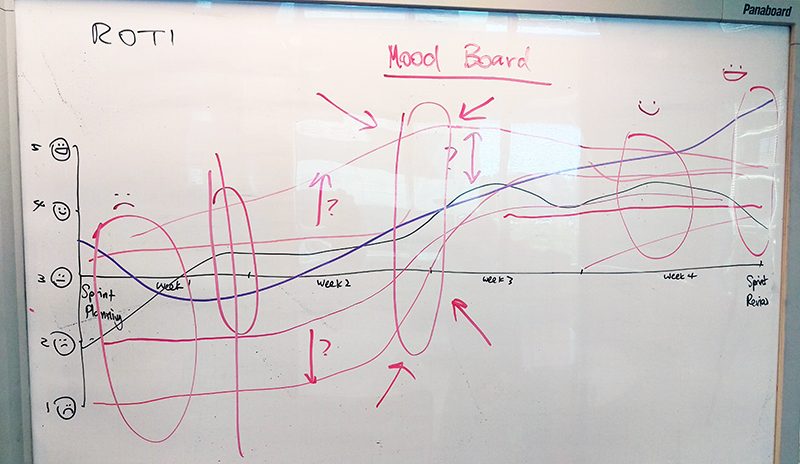 Panaboard
ROTI
Mood Board
5
4
3
2
1
?
?
?
Sprint
Planning
week 1
week 2
week 3
week 4
Sprint
Review